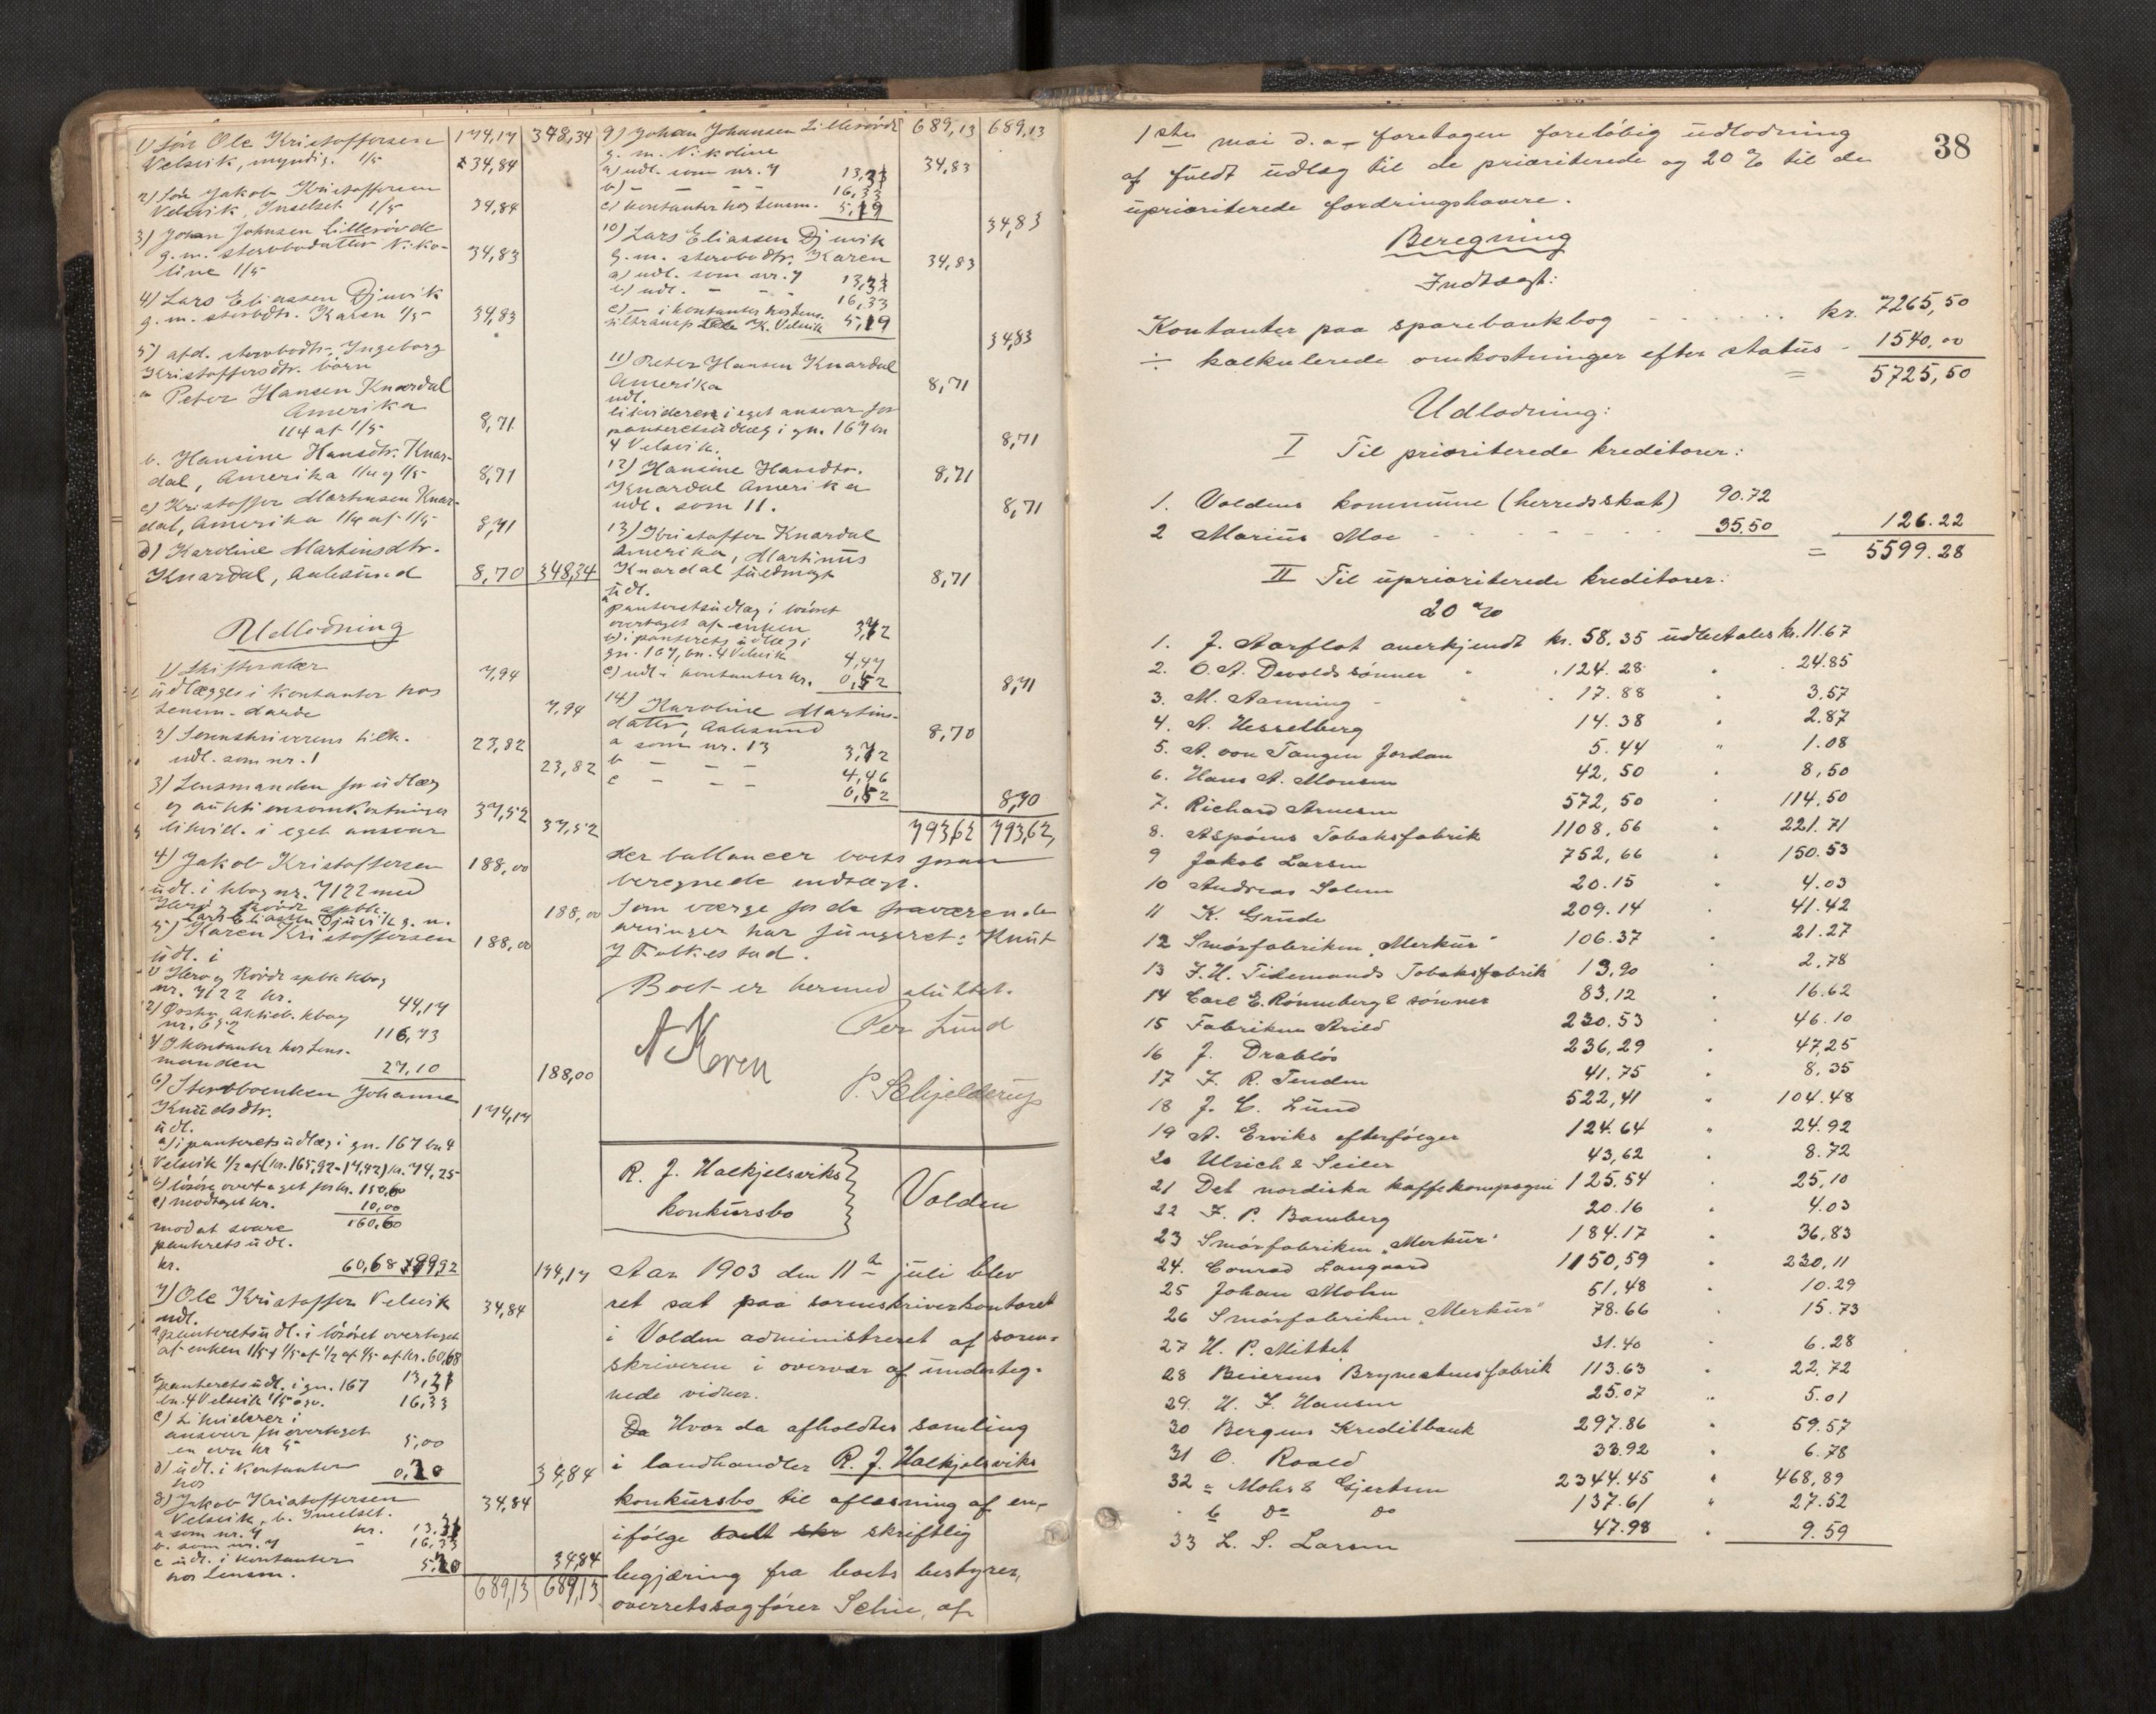 1) Søn Ole Kristoffersen 174,17 348,34
Velsvik, myndig. 1/5 34,84
2) Søn Jakob Kristoffersen
Velsvik, Inselset 1/5 34,84
3) Johan Johnsen Lillerövde
g. m. sterbodatter Niko-
line 1/5 34,83
4) Lars Eliassen Djuvik
g. m. sterbdtr. Karen 1/5 34,83
5) afd. sterbodtr. Ingeborg
Kristoffersdtr. börn
a Peter Hansen Knardal
Amerika
1/4 af 1/5 8,71
b. Hansine Hansdtr. Knar-
dal, Amerika 1/4 af 1/5 8,71
c) Kristoffer Martinsen Knar-
dal, Amerika 1/4 af 1/5 8,71
d) Karoline Martinsdtr.
Knardal, Aalesund 8,70 348,34
Udlodning
1) Skifteralær 7,94
udlægges i kontanter hos
lensm. Aarde 7,94
2) Sorenskriverens tilk. 23,82
udl. som nr. 1 23,82
3) Lensmanden for udlæg
og auktionsomkostninger 37,52
likvid. i eget ansvar 37,52
4) Jakob Kristoffersen 188,00
udl. i kbog nr. 7122 med
Herø & Røvde spbk. 188,00
Lars Eliassen Djuvik g. m.
5) Karen Kristoffersen 188,00
udl. i
1) Herø og Røvde spbk kbog
nr. 7122 kr. 44,17
2) Ørsta Aktieb. kbog
nr. 652 116,73
3) I kontanter hos lens-
manden 27,10 188,00
6) Sterboenken Johanne
Knudsdtr. 174,17
udl.
a) i panteretsudlæg i gn. 167 bn 4
Velsvik 1/2 af (kr. 165,92-17,42) kr. 74,25
b) lösöre overtaget for kr. 150,60
c) modtaget kr. 10,00
mod at svare 160,60
panterets udl.
kr. 60,68 99,92 174,17
7) Ole Kristoffer Velsvik 34,84
udl.
a) panteretsudl. i lösöret overtaget
af enken 1/5 af 1/2 af 1/5 af kr. 60,68
13,31
b) panteretsudl. i gn. 167
bn. 4 Velsvik 1/5 o.s.v. 16,33
c) Likviderer i
ansvar for overtaget
en ovn kr 5 5,00
d) udl. i kontanter
hos 0,20 34,84
8) Jakob Kristoffersen
Velsvik, b. Inselset. 34,84
a som nr. 7 kr. 13,31
b. som nr. 7 - 16,33
c udl. i kontanter
hos lensm. 5,20 34,84
689,13 689,13
9) Johan Johansen Lillerövde 689,13 689,13
g. m. Nikoline
a) udl. som nr. 7 13,31 34,83
b) - - - - 16,33
c) kontanter hos lensm. 5,19
34,83
10) Lars Eliassen Djuvik
g. m. sterbodtr. Karen 34,83
a) udl. som nr. 7 13,31
b) udl. - - - 16,33
c) - i kontanter hos lens.
K. Velsvik 5,19
34,83
11) Peter Hansen Knardal
Amerika 8,71
udl.
likviderer i eget ansvar for
panteretsudlæg i gn. 167 bn
4 Velsvik. 8,71
12) Hansine Hansdtr.
Knardal Amerika 8,71
udl. som 11. 8,71
13) Kristoffer Knardal
Amerika, Martinus
Knardal fuldmægt 8,71
udl.
a panteretsudlæg i lösöret
overtaget af enken 3,72
b) i panterets udlæg i
gn. 167, bn. 4 Velsvik 4,47
c) udl. i kontanter kr. 0,52 8,71
14) Karoline Martins-
datter, Aalesund 8,70
a som nr. 13 3,72
b - - - 4,46
c - - 0,52 8,70
793,62 793,62
der ballancer boets foran
beregnede indtægt.
Som værge for de fraværende
arvinger har fungeret: Knut
J Folkestad.
Boet er hermed sluttet.
A Koren
Per Lund
P. Schjelderup
R. J. Halkjelsviks
konkursbo
Volden
Aar 1903 den 11te juli blev
ret sat paa sorenskriverkontoret
i Volden administreret af soren-
skriveren i overvær af underteg-
nede vidner.
Da Hvor da afholdtes samling
i landhandler R. J. Halkjelsviks
konkursbo til aflæsning af en,
ifölge boets skr skriftlig
begjæring fra boets bestyrer,
overretssagförer Schie, af
38
1ste mai d. a. foretagen foreløbig udlodning
af fuldt udlæg til de prioriterede og 20 % til de
uprioriterede fordringshavere.
Beregning
Indtægt:
Kontanter paa sparebankbog - - . . . . . kr. 7265,50
÷ kalkulerede omkostninger efter status - 1540,00
= 5725,50
Udlodning:
I Til prioriterede kreditorer:
1. Voldens kommune (herredsskat) 90.72
2 Marius Moe - - - - - - 35.50 126.22
= 5599.28
II Til uprioriterede kreditorer:
20 %
1. J. Aarflot anerkjendt kr. 58.35 udbetales kr. 11.67
2. O. A. Devolds sønner " . 124.28 " . 24.85
3. M. Aanning - " . 17.88 " 3,57
4. A. Hesselberg 14.38 " 2.87
5. A. von Tangen Jordan 5.44 " 1.08
6. Hans A. Monsen 42,50 " 8,50
7. Richard Arnesen 572,50 " 114.50
8. Aspøens Tobaksfabrik 1108,56 " 221.71
9 Jakob Larsen 752,66 " 150.53
10 Andreas Solem 20.15 " 4.03
11 K. Grude 209.14 " 41.42
12 Smørfabriken „Merkur" 106.37 " 21.27
13 J. H. Tidemands Tobaksfabrik 13,90 " 2,78
14 Carl E. Rönneberg & sönner 83,12 " 16.62
15 Fabriken Arild 230.53 " 46.10
16 J. Drabløs 236,29 " 47,25
17 J. R. Tenden 41.75 " 8,35
18 J. C. Lund 522,41 " 104.48
19 A. Erviks efterfølger 124.64 " 24.92
20 Ulrich & Seiler 43,62 " 8.72
21 Det nordiska kaffekompagni 125.54 " 25,10
22 F. P. Bamberg 20.16 " 4.03
23 Smørfabriken „Merkur" 184.17 " 36,83
24. Conrad Langaard 1150,59 " 230,11
25 Johan Molin 51,48 " 10.29
26 Smørfabriken „Merkur" 78.66 " 15.73
27 H. P. Mittet 31.40 " 6.28
28 Beiermes Brynestensfabrik 113.63 " 22,72
29. H. F. Hansen 25.07 " 5.01
30 Bergens Kreditbank 297.86 " 59.57
31 O. Roald 33.92 " 6.78
32 a Mohr & Gjertsen 2344.45 " 468,89
" b do do 137.61 " 27.52
33 L. S. Larsen 47.98 " 9.59